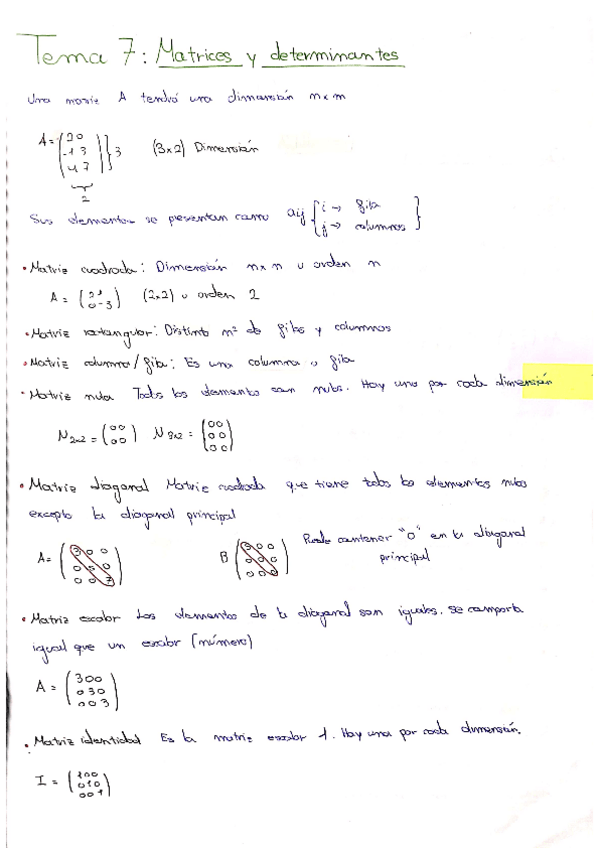 Tema 7: Matrices y determinantes
Una matriz A tendrá una dimensión n×m
A = (2 0 / -1 3 / 4 7) } 3 (3×2) Dimensión
2
Sus elementos se presentan como aij { i → fila
j → columnas }
• Matriz cuadrada: Dimensión n×n u orden n
A = (2 / 0 -3) (2×2) u orden 2
• Matriz rectangular: Distinto nº de filas y columnas
• Matriz columna/fila: Es una columna o fila
• Matriz nula Todos los elementos son nulos. Hay una por cada dimensión
N 2×2 = (0 0 / 0 0) N 3×2 = (0 0 / 0 0 / 0 0)
• Matriz diagonal Matriz cuadrada que tiene todos los elementos nulos
excepto la diagonal principal
A = (3 0 0 / 0 5 0 / 0 0 7) B (3 0 0 / 0 0 0 / 0 0 0) Puede contener "0" en la diagonal
principal
• Matriz escalar Los elementos de la diagonal son iguales. Se comporta
igual que un escalar (número)
A = (3 0 0 / 0 3 0 / 0 0 3)
• Matriz identidad Es la matriz escalar 1. Hay una por cada dimensión.
I = (1 0 0 / 0 1 0 / 0 0 1)